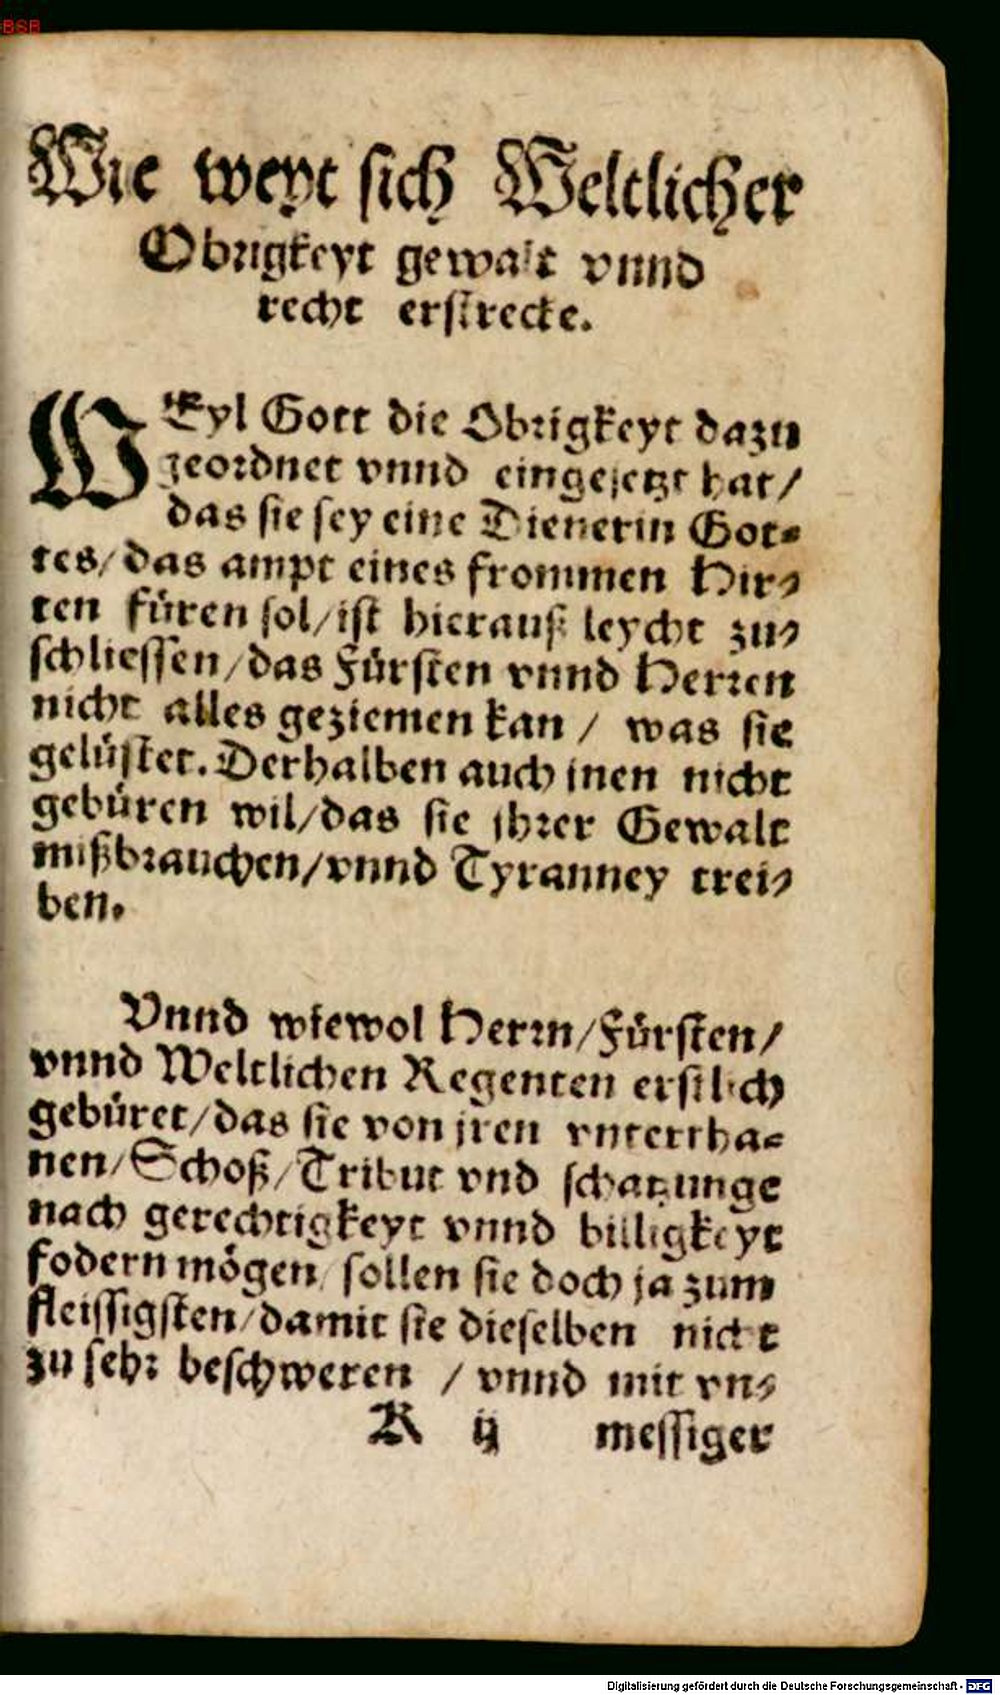 BSB
Wie weyt sich Weltlicher
Obrigkeyt gewalt vnnd
recht erstrecke.
WEyl Gott die Obrigkeyt dazu
geordnet vnnd eingesetzt hat/
das sie sey eine Dienerin Got=
tes/das ampt eines frommen Hir=
ten füren sol/ist hierauß leycht zu=
schliessen/das Fürsten vnnd Herren
nicht alles geziemen kan / was sie
gelüstet. Derhalben auch jnen nicht
gebüren wil/das sie jhrer Gewalt
mißbrauchen/vnnd Tyranney trei=
ben.
Vnnd wiewol Herrn/Fürsten/
vnnd Weltlichen Regenten erstlich
gebüret/das sie von jren vntertha=
nen/Schoß/Tribut vnd schatzunge
nach gerechtigkeyt vnnd billigkeyt
fodern mögen/sollen sie doch ja zum
fleissigsten/damit sie dieselben nicht
zu sehr beschweren / vnnd mit vn=
R ij messiger
Digitalisierung gefördert durch die Deutsche Forschungsgemeinschaft - DFG